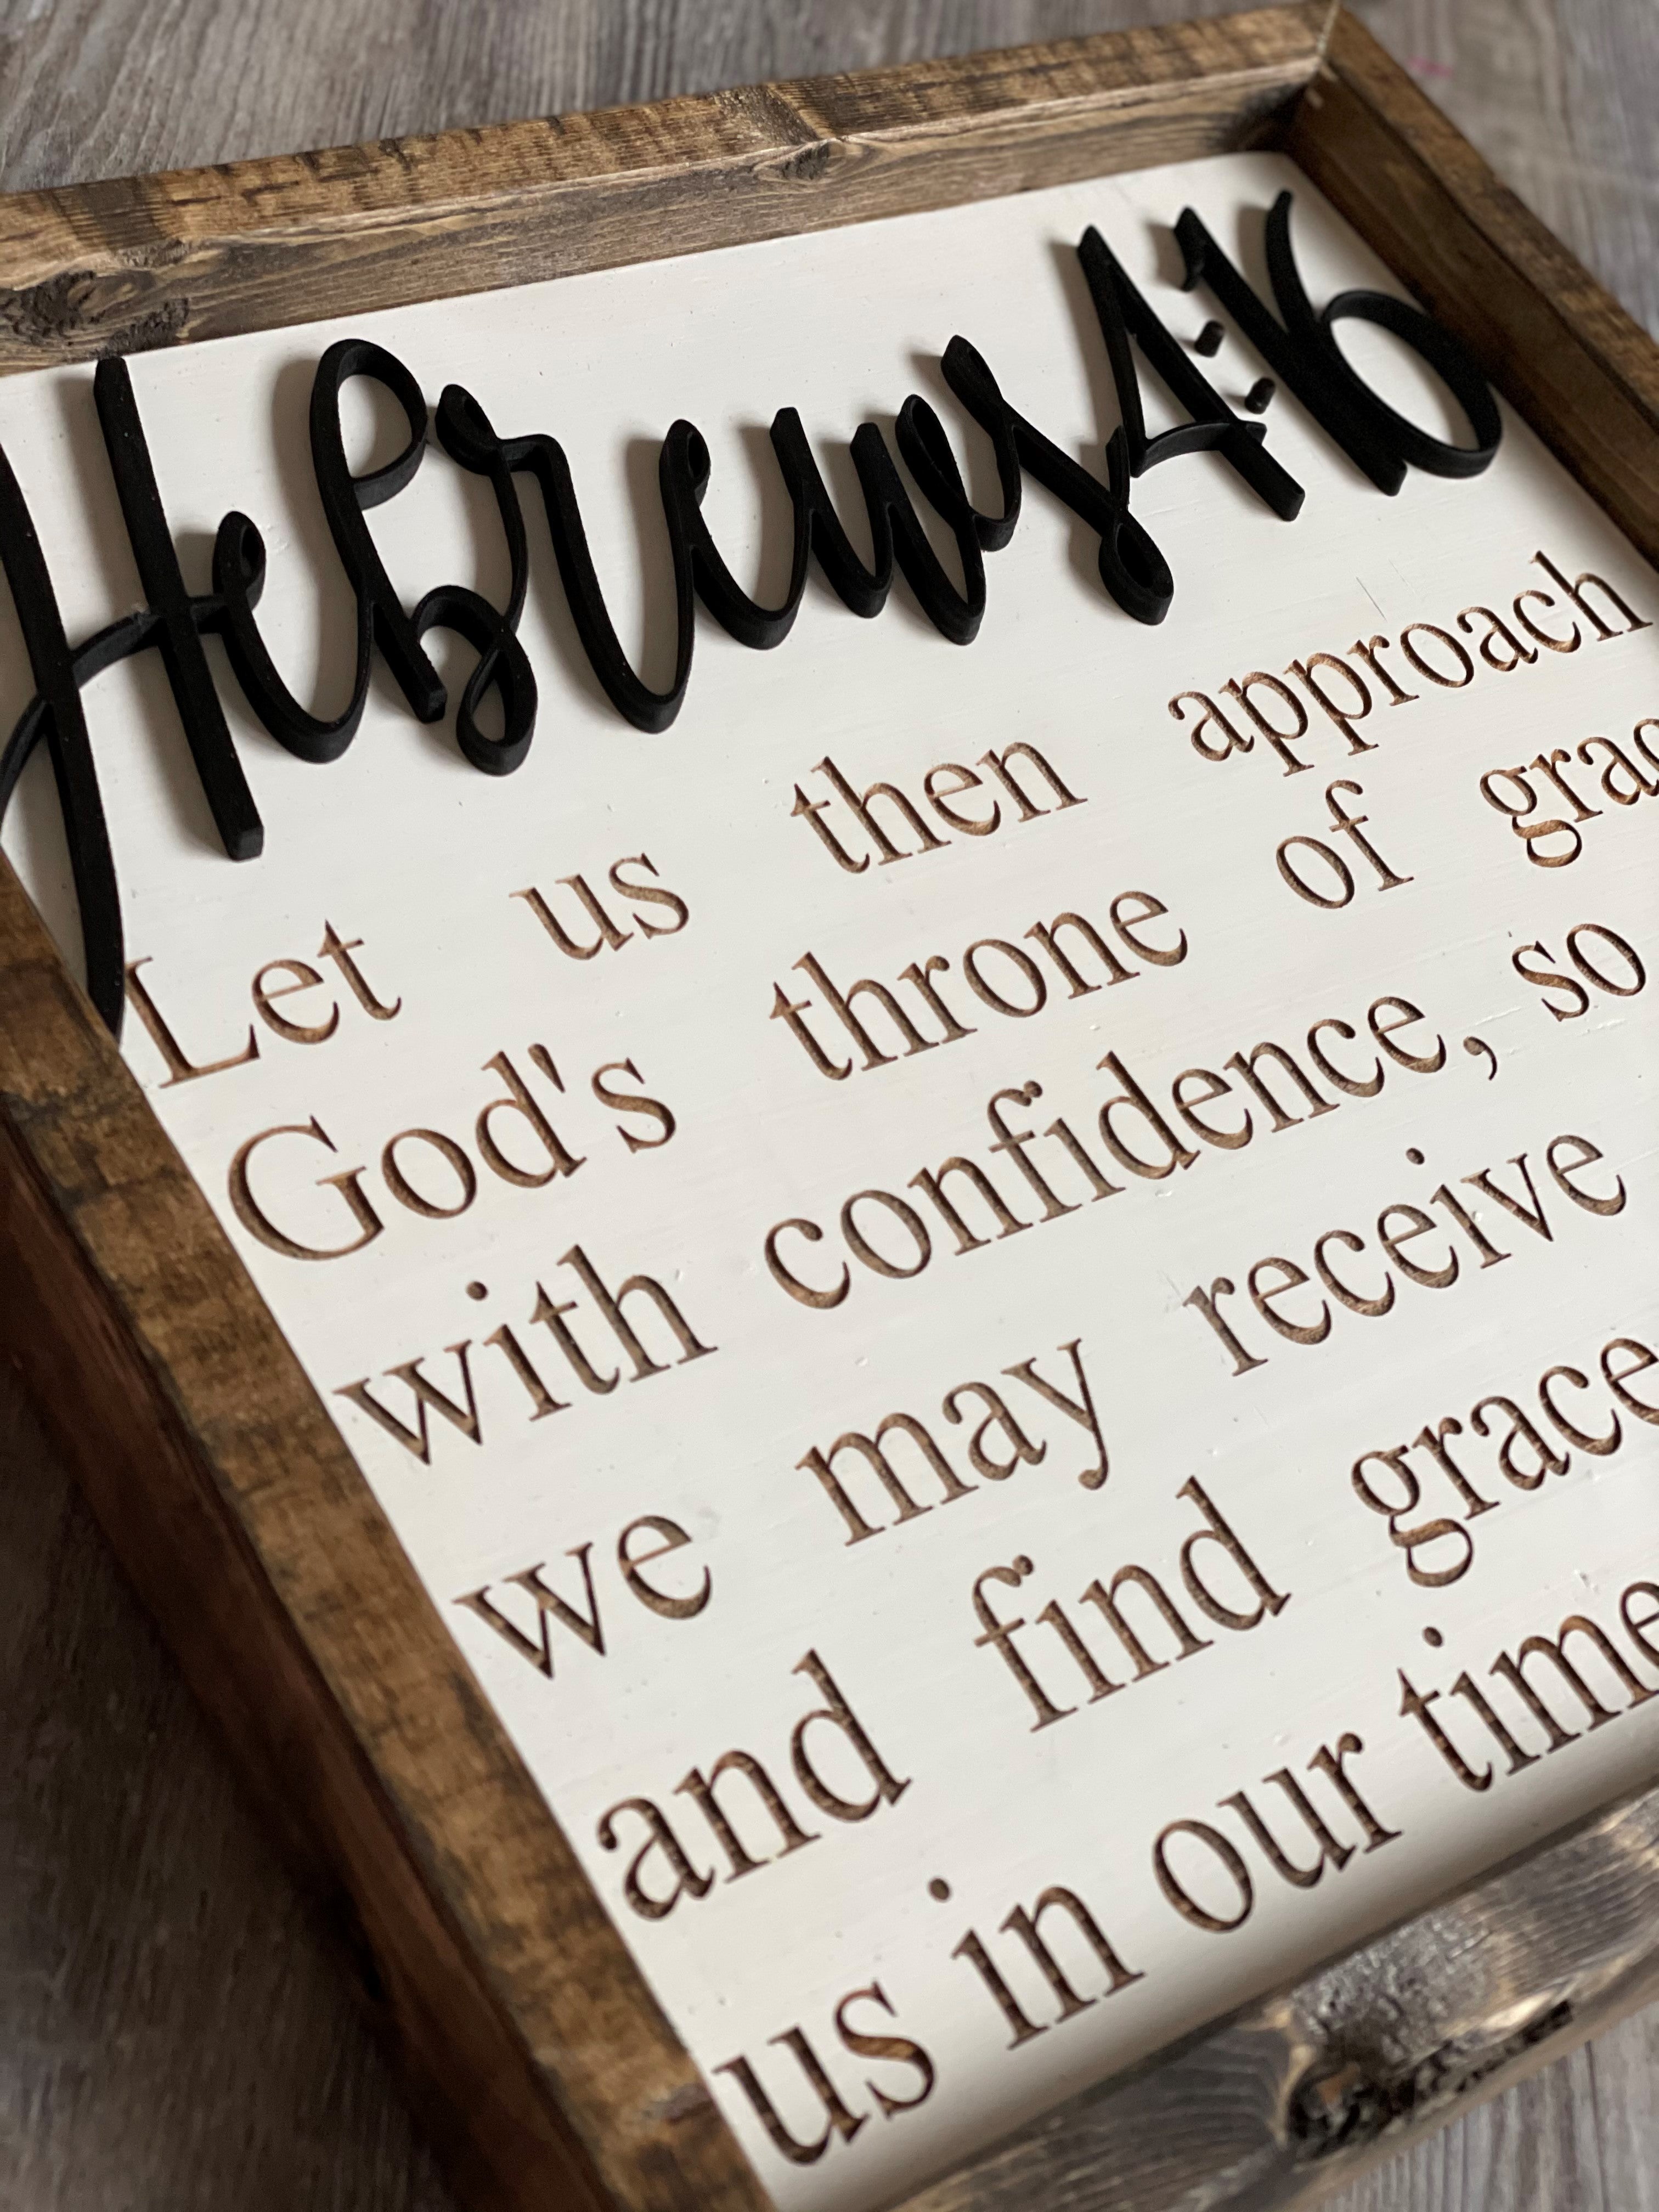 Hebrews 4:16
Let us then approach
God's throne of grac
with confidence, so
we may receive
and find grace
us in our time